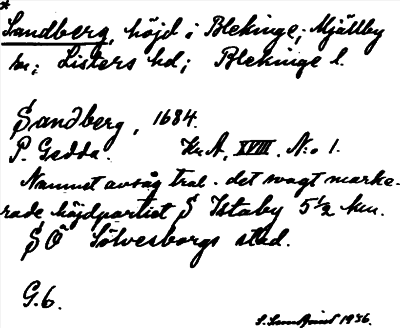 *
Sandberg, höjd i Blekinge; Mjällby
sn; Listers hd; Blekinge l.
Sandberg, 1684.
P. Gedda. Kr. A. XVIII. N:o 1.
Namnet avsåg trol. det svagt marke-
rade höjdpartiet S Istaby 5½ km.
SÖ Sölvesborgs stad.
G.6.
1936.